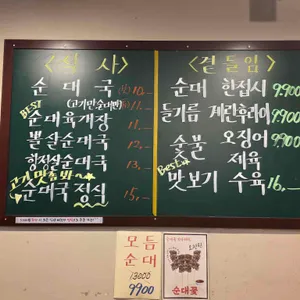 <식사>
순대국 10.-
(고기만순대반) 11.-
BEST
순대육개장
뽈살순대국 12.-
항정살순대국 13.-
고기맛좀봐~
순대국 정식 15.-
<곁들임>
순대 한접시 9,900
들기름 계란후라이 9,900
숯불 오징어 9,900
Best
제육
맛보기 수육 16.-
모듬
순대
13000
9900
순대꽃